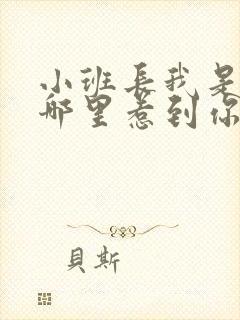 小班長我是
哪里惹到你
貝斯